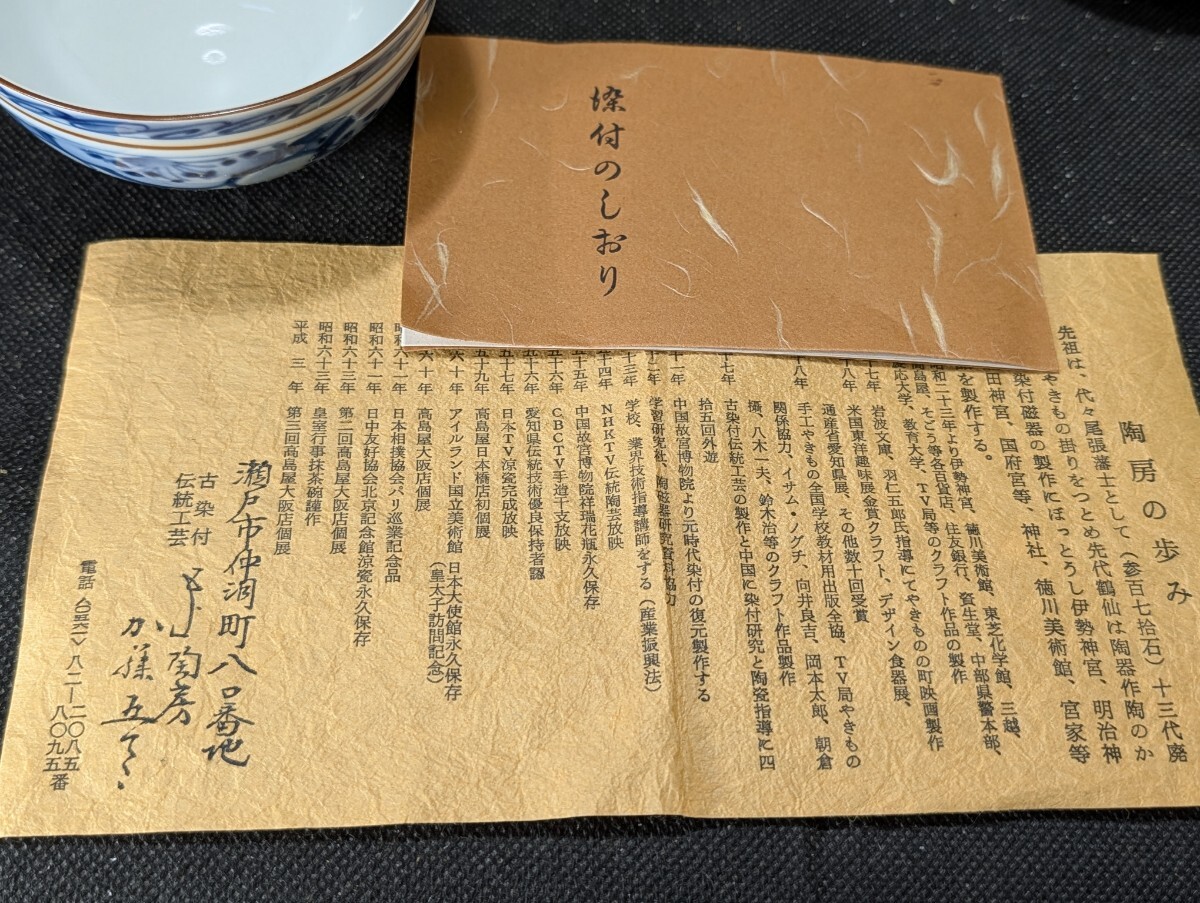 染付のしおり
陶房の歩み
先祖は、代々尾張藩士として（参百七拾石）十三代廃
やきもの掛りをつとめ先代鶴仙は陶器作陶のか
染付磁器の製作にぼっとうし伊勢神宮、明治神
田神宮、国府宮等、神社、徳川美術館、宮家等
を製作する。
昭和二十三年より伊勢神宮、徳川美術館、東芝化学館、三越、
高島屋、そごう等各百貨店、住友銀行、資生堂、中部県警本部、
慶応大学、教育大学、TV局等のクラフト作品の製作
十七年 岩波文庫、羽仁五郎氏指導にてやきものの町映画製作
十八年 米国東洋趣味展金賞クラフト、デザイン食器展、
通産省愛知県展、その他数十回受賞
手工やきもの全国学校教材用出版全協、TV局やきもの
十八年 関係協力、イサム・ノグチ、向井良吉、岡本太郎、朝倉
摂、八木一夫、鈴木治等のクラフト作品製作
十七年 古染付伝統工芸の製作と中国に染付研究と陶瓷指導に四
拾五回外遊
十一年 中国故宮博物院より元時代染付の復元製作する
十二年 学習研究社、陶磁器研究資料協力
十三年 学校、業界技術指導講師をする（産業振興法）
十四年 NHKTV伝統陶芸放映
五十五年 中国故宮博物院祥瑞花瓶永久保存
五十六年 CBCTV手造十支放映
五十六年 愛知県伝統技術優良保持者認
五十七年 日本TV涼瓷完成放映
五十九年 高島屋日本橋店初個展
六十年 アイルランド国立美術館 日本大使館永久保存
（皇太子訪問記念）
六十年 高島屋大阪店個展
昭和六十一年 日本相撲協会パリ巡業記念品
昭和六十一年 日中友好協会北京記念館涼瓷永久保存
昭和六十三年 第二回高島屋大阪店個展
昭和六十三年 皇室行事抹茶碗謹作
平成 三 年 第三回高島屋大阪店個展
瀬戸市仲洞町八〇番地
古染付
伝統工芸
陶房
加藤五
電話 〈〇五六一〉 八二―二〇八五
八〇九五番